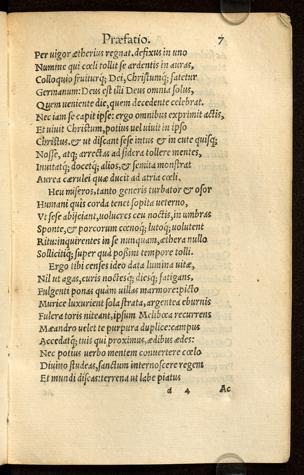 Præfatio. 7
Per uigor ætherius regnat, defixus in uno
Numine qui cœli tollit se ardentis in auras,
Colloquio fruiturq; Dei, Christumq; fatetur
Germanum: Deus est illi Deus omnia solus,
Quem ueniente die, quem decedente celebrat.
Nec iam se capit ipse: ergo omnibus exprimit actis,
Et uiuit Christum, potius uel uiuit in ipso
Christus. & ut discant sese intus & in cute quisq;
Nosse, atq; arrectas ad sidera tollere mentes,
Inuitatq; docetq; alios, & semita monstrat
Aurea cærulei quæ ducit ad atria cœli.
Heu miseros, tanto generis turbator & osor
Humani quis corda tenet sopita ueterno,
Vt sese abijciant, uolucres ceu noctis, in umbras
Sponte, & porcorum cœnoq; lutoq; uolutent
Ritu: inquirentes in se nunquam, æthera nullo
Solliciti q; super quà possint tempore tolli.
Ergo tibi censes ideo data lumina uitæ,
Nil ut agas, curis noctesq; diesq; fatigans,
Fulgenti ponas quàm uillas marmore: picto
Murice luxurient sola strata, argentea eburnis
Fulcra toris niteant, ipsum Melibœa recurrens
Mæandro uelet te purpura duplice: campus
Accedatq; tuis qui proximus, ædibus ædes:
Nec potius uerbo mentem conuertere cœlo
Diuino studeas, sanctum internoscere regem
Et mundi discas: terrena ut labe piatus
d 4 Ac